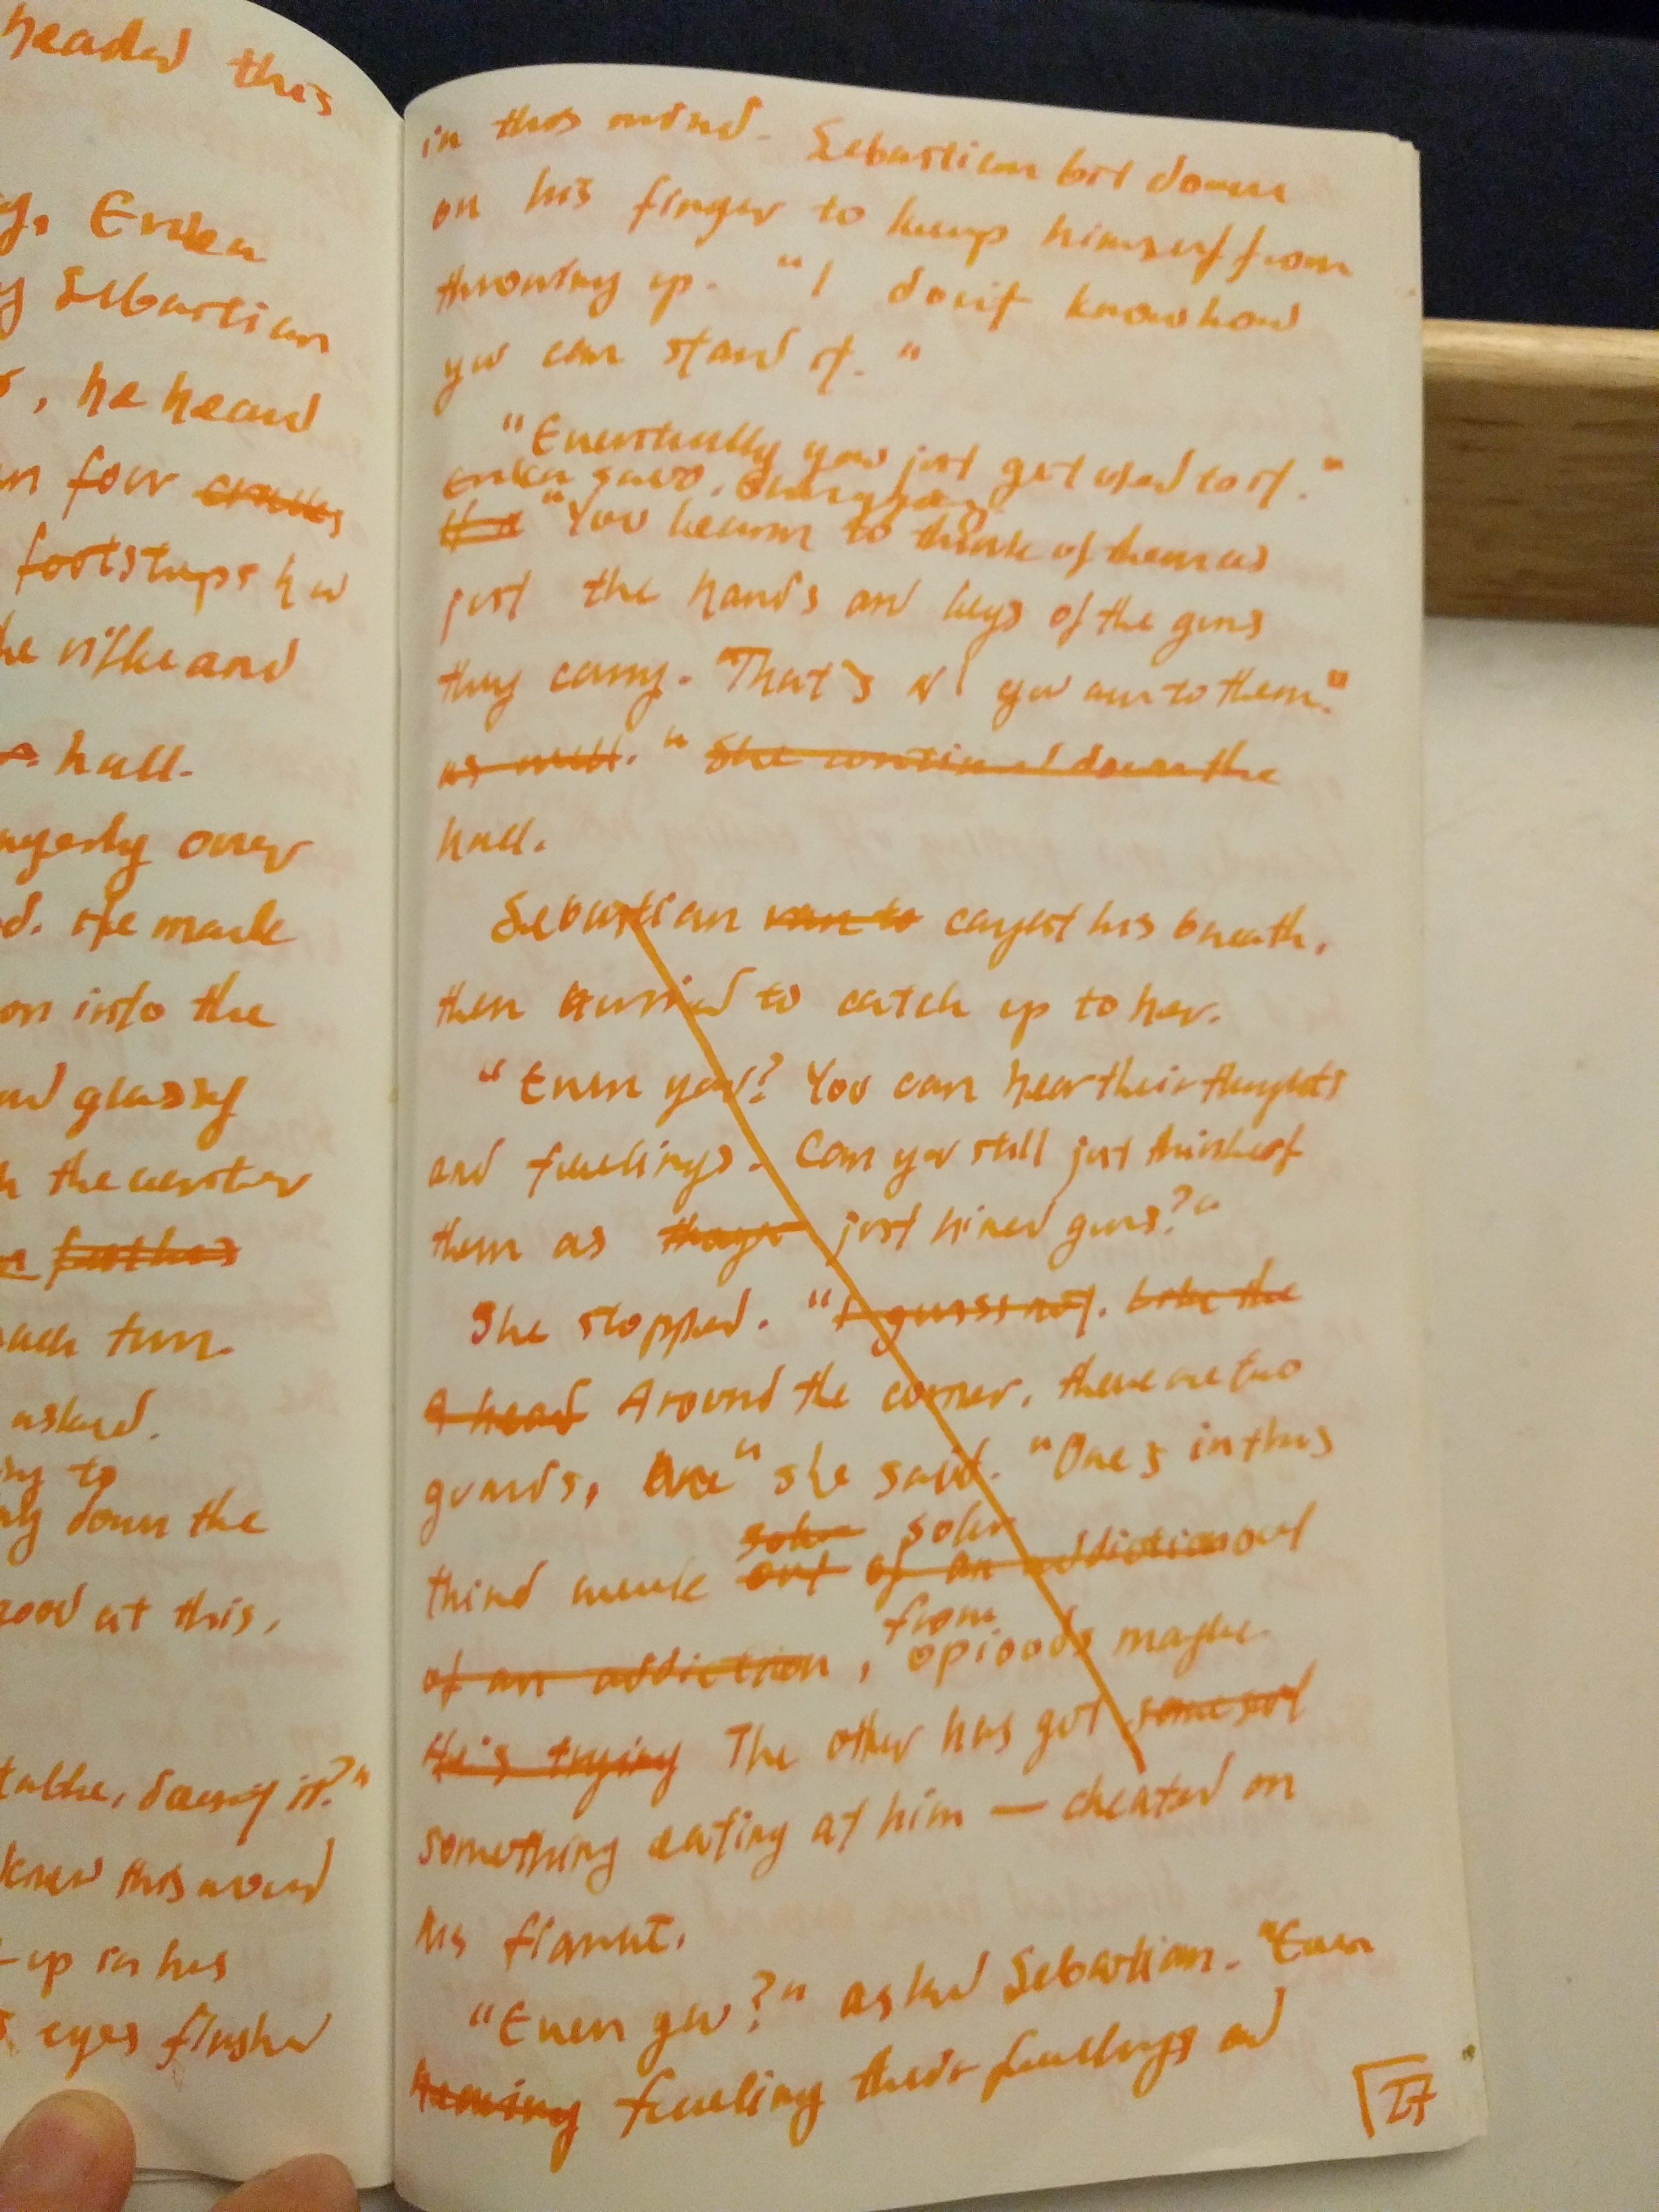 headed this
, Erika
Sebastian
, he heard
four
footsteps he
he rifle and
hall.
gerly over
d. She made
on into the
nd glassy
the center
fathers
ach turn.
asked.
ing to
ly down the
good at this,
table, doesn't it?"
knew this would
up in his
eyes flashed
in this mind. Sebastian bit down
on his finger to keep himself from
throwing up. "I don't know how
you can stand it."
"Eventually you just get used to it."
Erika said, shrugging
the "You learn to think of them as
just the hands and legs of the guns
they carry. That's all you are to them."
as well." She continued down the
hall.
Sebastian ran to caught his breath,
then hurried to catch up to her.
"Even you? You can hear their thoughts
and feelings. Can you still just think of
them as just hired guns?"
She stopped. "I guess not. Like the
Ahead Around the corner, there are two
guards, " she said. "One's in his
sober sober
third week out of an addiction out
from
of an addiction, opioods maybe.
He's trying The other has got some sort
something eating at him — cheated on
his fiancé.
"Even you?" asked Sebastian. "Even
hearing feeling their feelings and
27